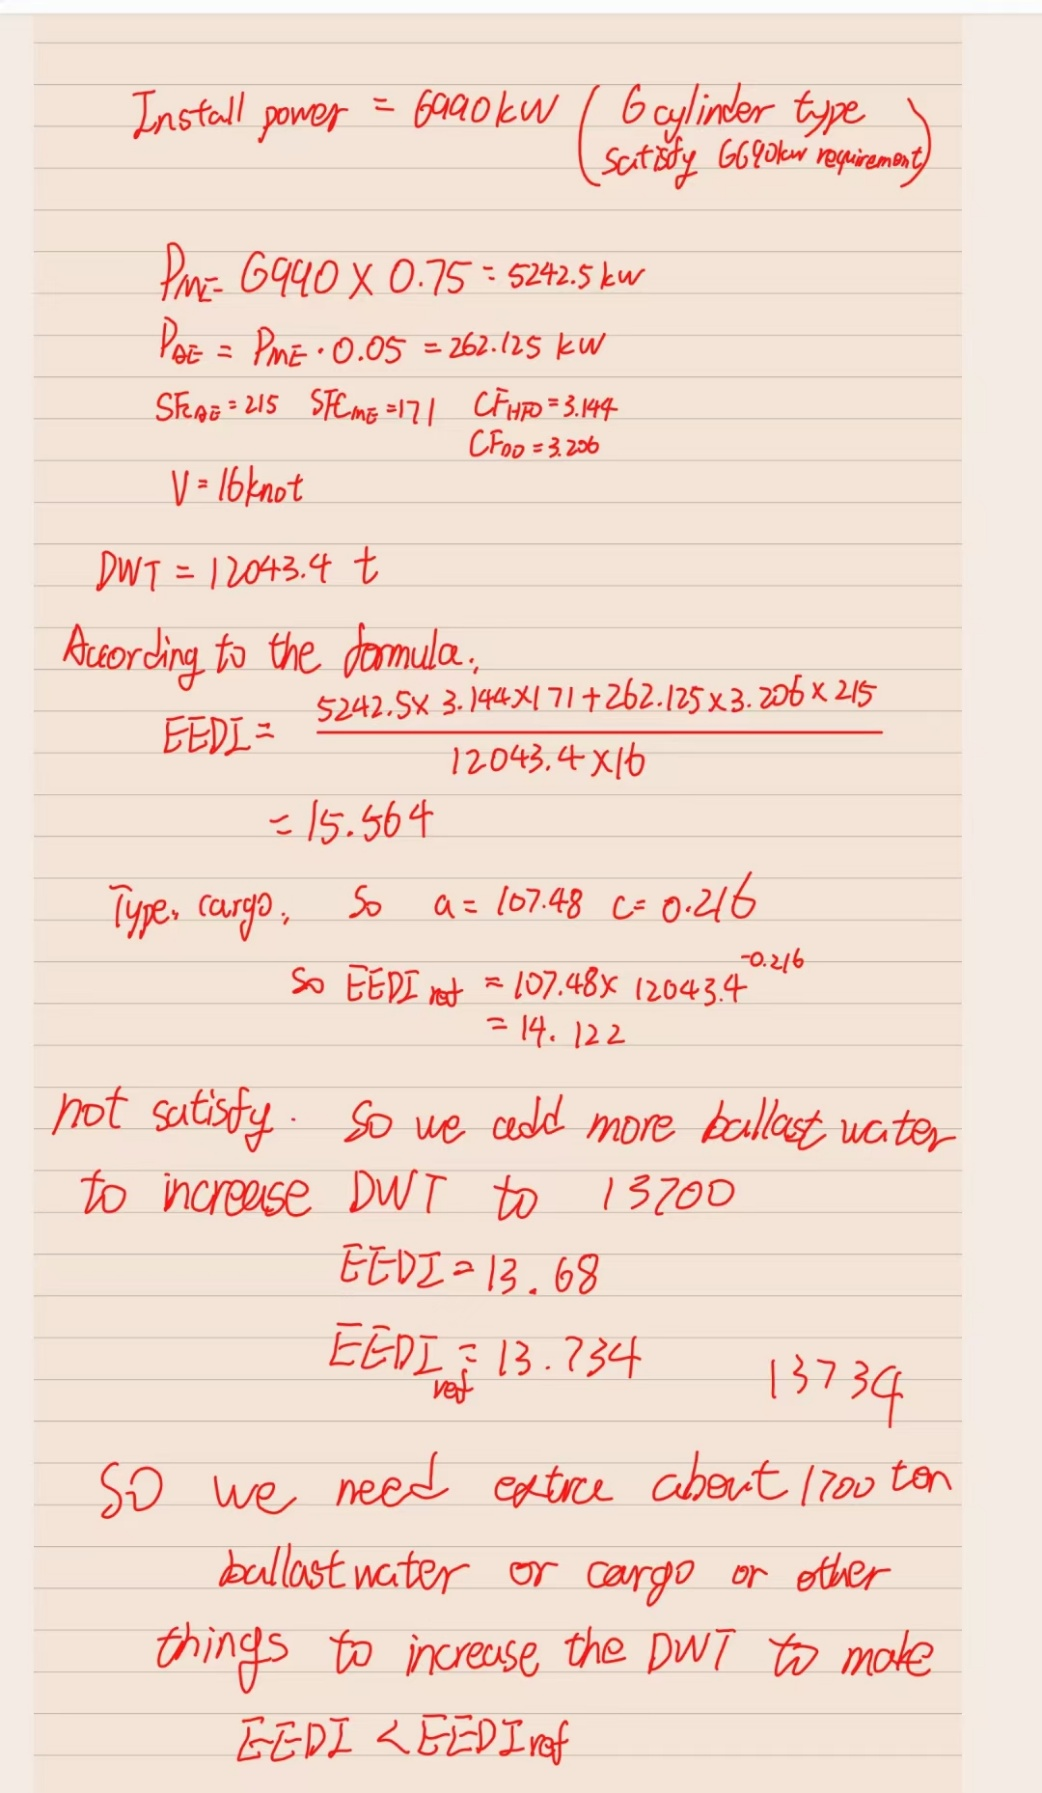 Install power = 6990kW ( 6 cylinder type
satisfy 6690kw requirement)
PME= 6990 X 0.75 = 5242.5 kw
PAE = PME · 0.05 = 262.125 kW
SFCAE = 215 SFCME =171 CFHFO = 3.144
CFDO = 3.206
V = 16knot
DWT = 12043.4 t
According to the formula.,
EEDI = 5242.5× 3.144×171+262.125×3.206×215
12043.4×16
= 15.564
Type. cargo., So a = 107.48 c= 0.216
So EEDI ref = 107.48× 12043.4^-0.216
= 14.122
not satisfy. So we add more ballast water
to increase DWT to 13700
EEDI = 13.68
EEDI ref = 13.734 13734
So we need extra about 1700 ton
ballast water or cargo or other
things to increase the DWT to make
EEDI < EEDI ref